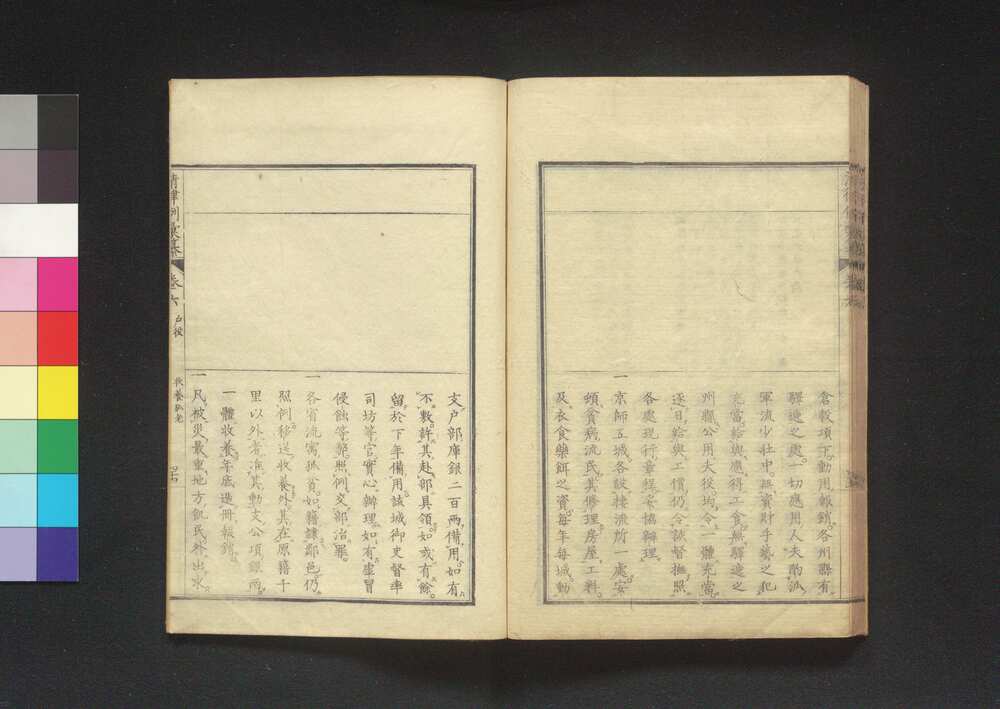 倉穀項下動用報銷各州縣有
驛遞之處一切應用人夫酌派
軍流少壯中無資財手藝之犯
充當給與應得工食無驛遞之
州縣公用夫役均令一體充當
逐日給與工價仍令該督撫照
各處現行章程妥協辦理
一京師五城各設棲流所一處安
頓貧病流民其修理房屋工料
及衣食藥餌之資每年每城動
支戶部庫銀二百兩備用如有
不敷許其赴部具領如或有餘
留於下年備用該城御史督率
司坊等官實心辦理如有虛冒
侵蝕等弊照例交部治罪
一各省流寓孤貧如籍隸鄰邑仍
照例移送收養外其在原籍千
里以外者准其動支公項銀兩
一體收養年底造冊報銷
一凡被災最重地方飢民外出求
清律例彙纂 卷六 戶役 收養孤老